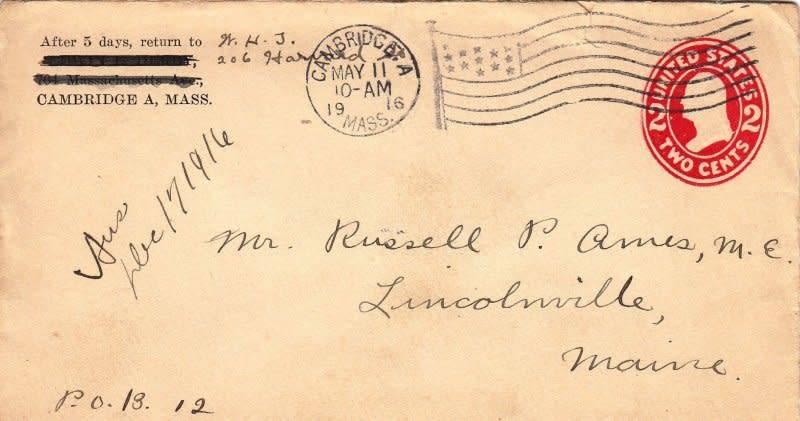 After 5 days, return to W. H. J.
206 Harvard
704 Massachusetts Ave.,
CAMBRIDGE A, MASS.
CAMBRIDGE A
MAY 11
10-AM
19 16
MASS.
UNITED STATES
2 2
TWO CENTS
Ans
Dec 17 1916
Mr. Russell P. Ames, M. E.
Lincolnville,
Maine.
P. O. B. 12